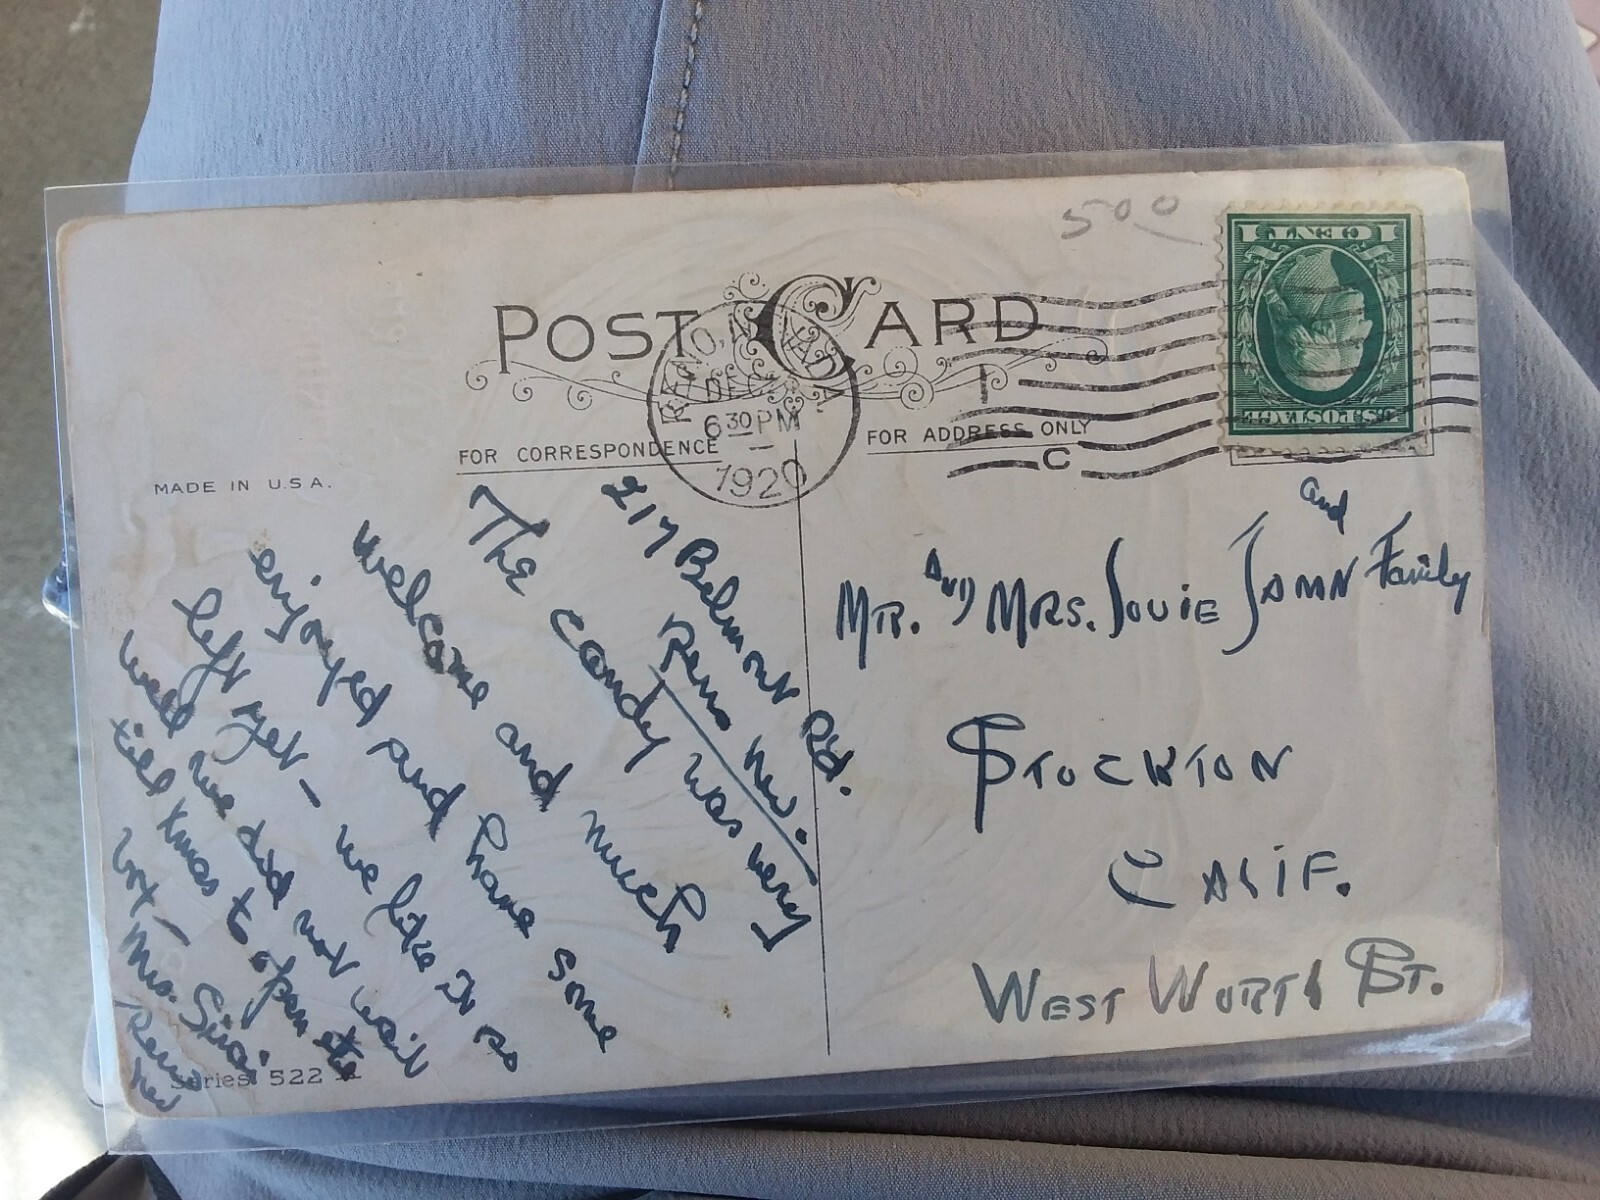 500
POST CARD
RENO, NEVADA
DEC
6 30 PM
1920
1 CENT 1
U.S. POSTAGE
1
C
FOR CORRESPONDENCE
FOR ADDRESS ONLY
MADE IN U.S.A.
217 Belmont Rd.
Reno Nev.
The candy was very
welcome and much
enjoyed and have some
left yet - we like it so
well we did not wait
till Xmas to open the
Mrs.
Reno
Nev
Series 522
and
MR. AND MRS. Family
STOCKTON
CALIF.
WEST WORTH ST.